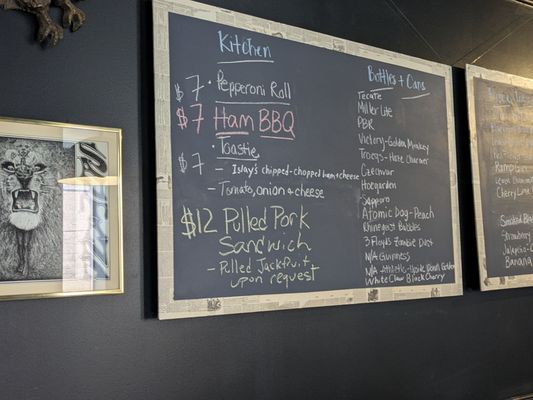 Kitchen
$7 · Pepperoni Roll
$7 Ham BBQ
$7 · Toastie
- Islay's chipped-chopped ham & cheese
- Tomato, onion & cheese
$12 Pulled Pork
Sandwich
- Pulled Jackfruit
upon request
Bottles + Cans
Tecate
Miller Lite
PBR
Victory-Golden Monkey
Troegs-Haze Charmer
Hoegarden
Sapporo
Atomic Dog-Peach
Rhinegeist Bubbles
3 Floyds Zombie Dust
N/A Guinness
N/A Athletic-
White Claw Black Cherry
Cherry
Strawberry
Banana